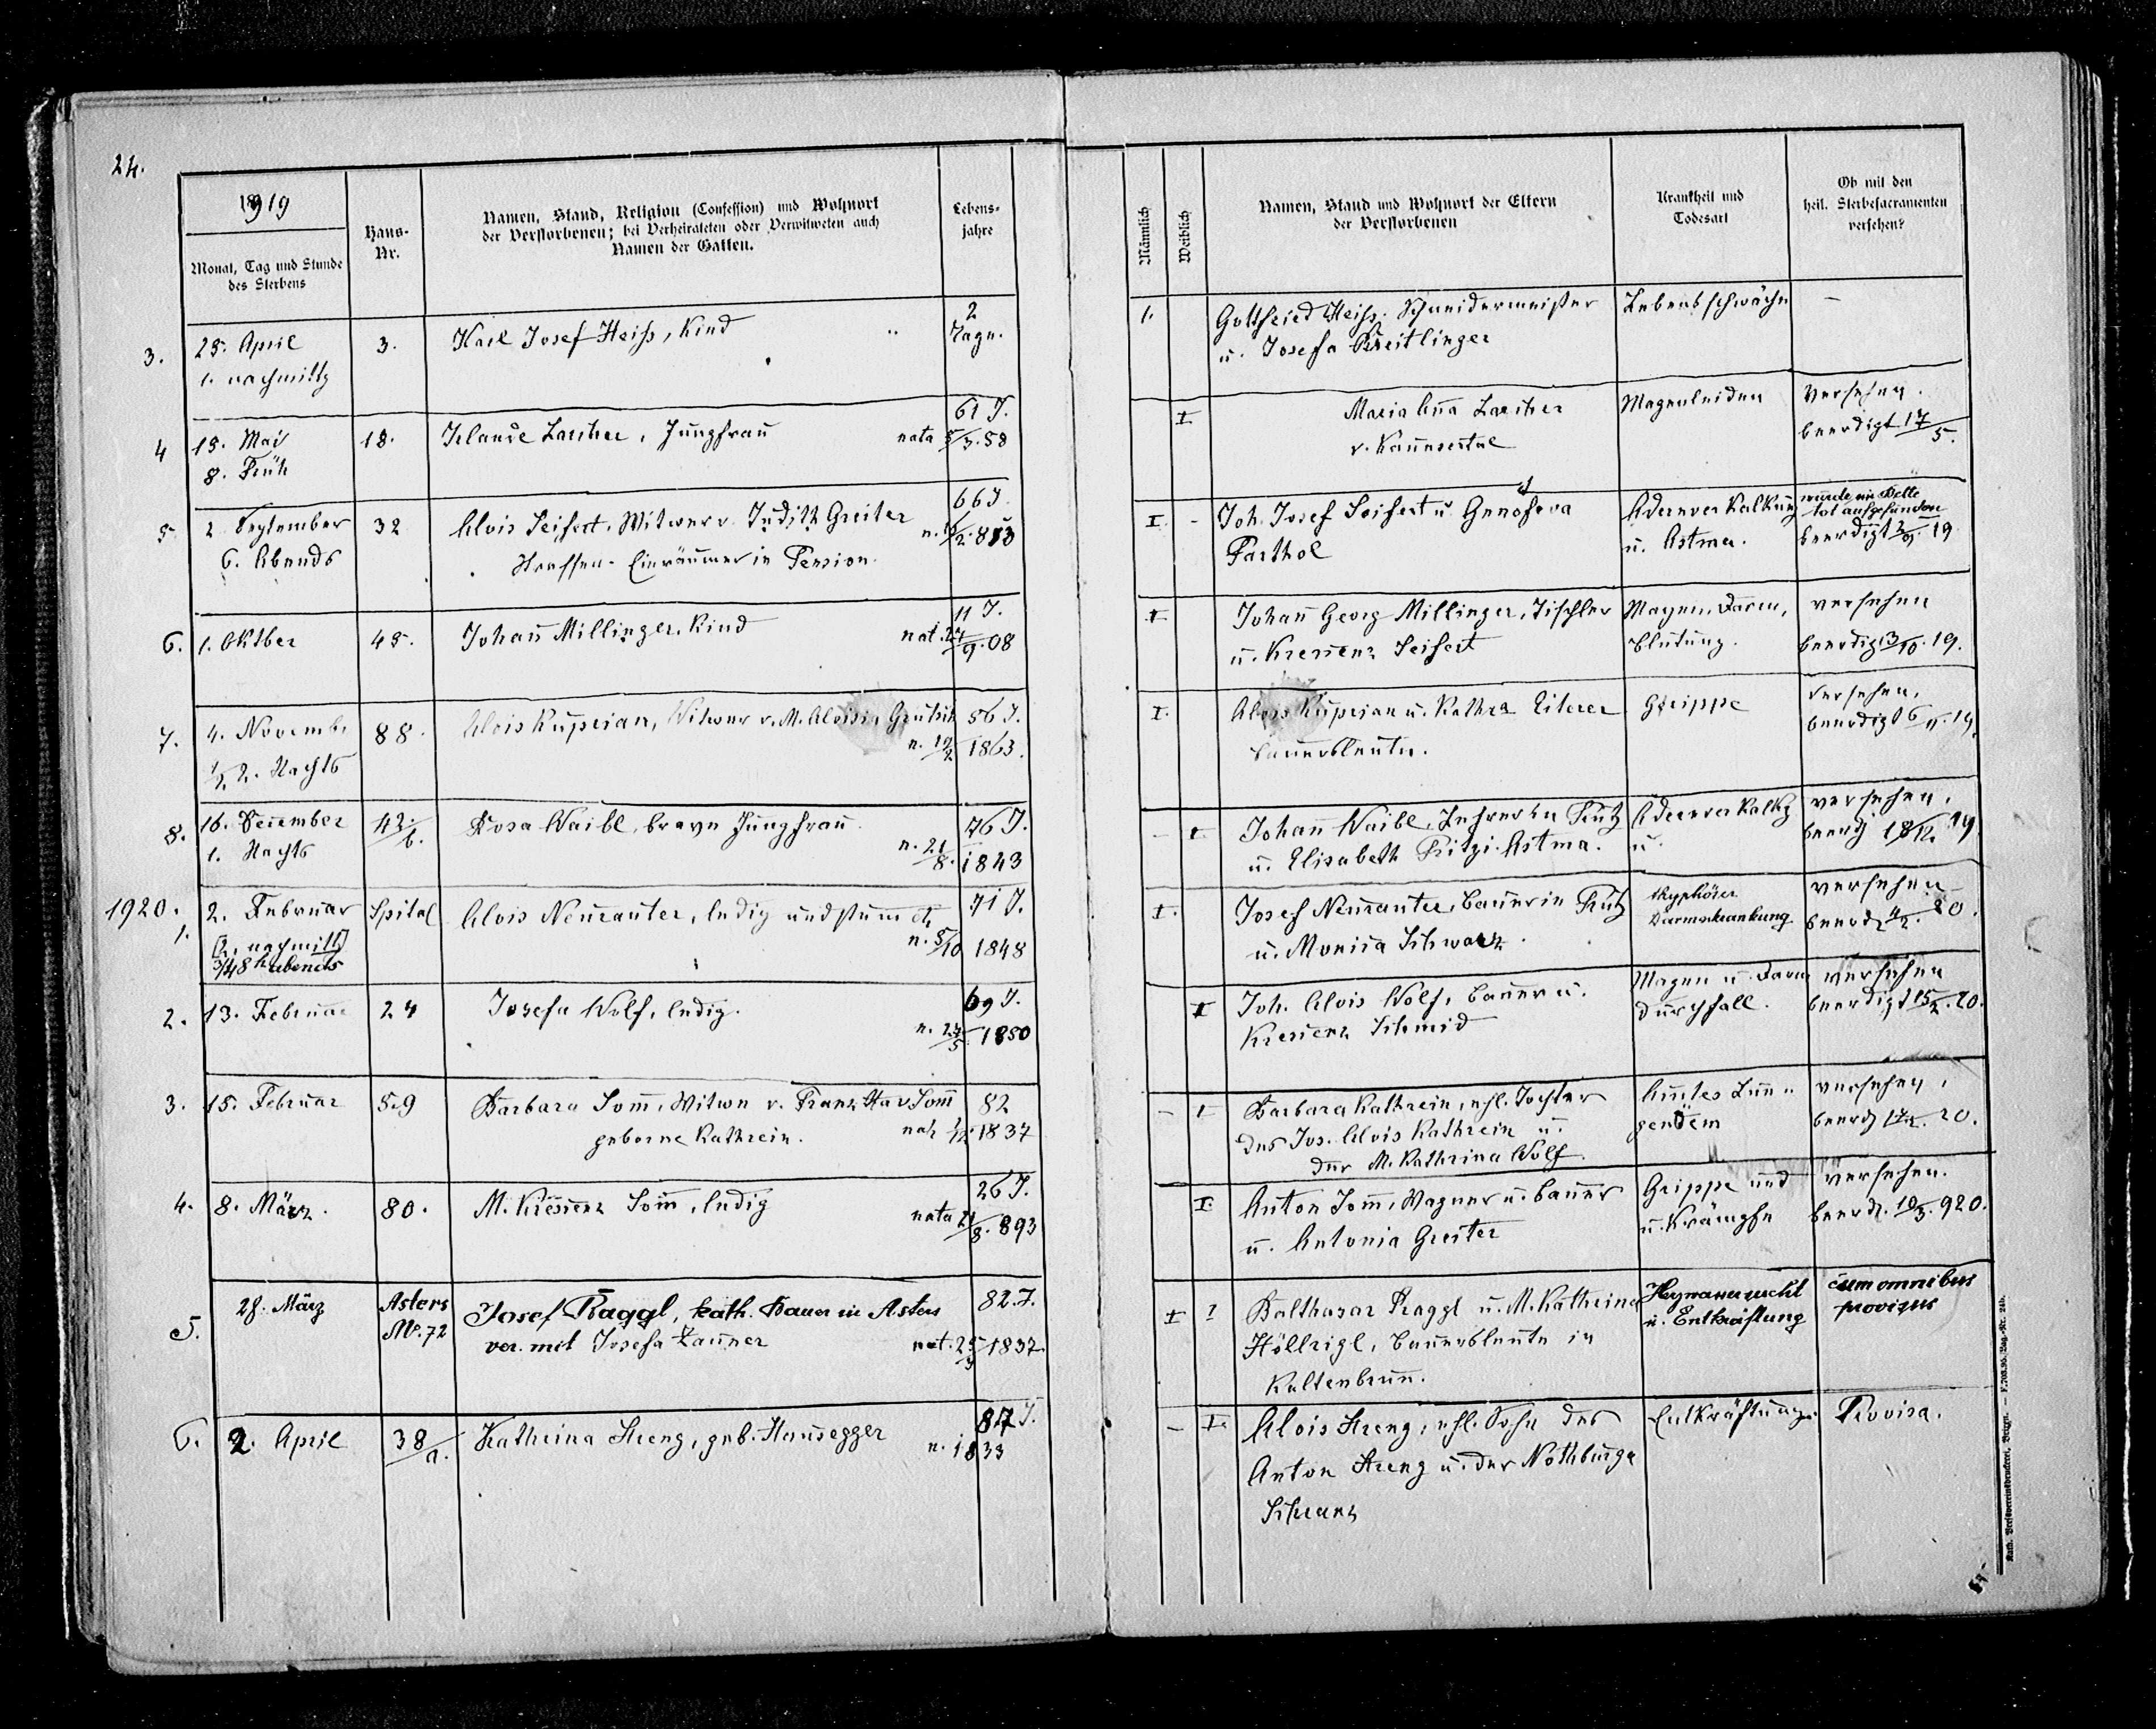 24.
1919
Monat, Tag und Stunde
des Sterbens
Haus-
Nr.
Namen, Stand, Religion (Confession) und Wohnort
der Verstorbenen; bei Verheirateten oder Verwitweten auch
Namen der Gatten.
Lebens-
jahre
Männlich
Weiblich
Namen, Stand und Wohnort der Eltern
der Verstorbenen
Krankheit und
Todesart
Ob mit den
heil. Sterbesacramenten
versehen?
3.
25. April
1. nachmittg
3.
Karl Josef Heiss, Kind
2
Tage.
1.
Gottfried Heiss, Schneidermeister
u. Josefa Kreitlinger
Lebensschwäche
–
4
15. Mai
8. Früh
18.
Larcher, Jungfrau
61 J.
nata 5/3. 58
I
Maria Anna Larcher
v. Kaunsertal
Magenleiden
Versehen.
beerdigt 17/5.
5
2. September
6. Abends
32
Alois Seifert, Witwer v. Judith Greiter
Strassen-Einräumer in Pension.
66 J.
I. -
Joh. Josef Seifert u. Genofeva
Parthol
Aderverkalkung
u. Astma.
wurde im Bette
tot aufgefunden
beerdigt 19
6.
1. Oktber
45.
Johann Millinger, Kind
11 J.
nat. 27/9. 08
I
Johann Georg Millinger, Tischler
u. Kreszenz Seifert
Magen, Darm,
blutung.
versehen
beerdigt 3/10. 19.
7.
4. Novemb.
1/2 2. Nachts
88.
Alois Kuprian, Witwer v. M. Aloisia Grutsch
56 J.
n. 19/2 1863.
I.
Alois Kuprian u. Kathra Eiterer
Bauersleute.
Grippe
versehen.
beerdigt 6/11. 19.
8.
16. Dezember
1. Nachts
42./b.
Rosa Waibl, brave Jungfrau.
76 J.
n. 21/8. 1843
- I
Johann Waibl, Lehrer in Prutz
u. Elisabeth Pritzi. Astma.
Aderverkalkg
u.
versehen.
beerdg 18/12. 19
1920.
1.
2. Februar
[2. nachmitt]
3/4 8 h abends
Spital
Alois Neurauter, ledig und stumm etz
71 J.
n. 5/10 1848
I.
Josef Neurauter, Bauer in Prutz
u. Monika Schwarz.
thyphöser
Darmerkrankung.
versehen
beerd. 4/2. 20.
2.
13. Februar
24
Josefa Wolf, ledig.
69 J.
n. 27/5 1850
I
Joh. Alois Wolf, Bauer u.
Kreszenz Schmid
Magen u. Darm
durchfall.
versehen
beerdigt 15/2. 20.
3.
15. Februar
59
Barbara Tomm, Witwe v. Franz Xav Tomm
geborne Kathrein.
82
nat 1/12. 1837
- I
Barbara Kathrein, ehl. Tochter
des Jos. Alois Kathrein u.
der M. Kathrina Wolf.
Akutes Lun-
genödem
versehen,
beerdg 17/2. 20.
4.
8. März.
80.
M. Kreszenz Tomm, ledig
26 J.
nata 21/8. 893
I.
Anton Tomm, Wagner u. Bauer
u. Antonia Greiter
Grippe und
u. Krämpfe
versehen.
beerdt. 10/3. 920.
5.
28. März
Asters
No. 72
Josef Raggl, kath. Bauer in Asters
ver. mit Josefa Zauner
82. J.
nat. 25/3 1837.
I 1
Balthasar Praggl u. M. Kathrina
Höllrigl, Bauersleute in
Kaltenbrunn.
u. Entkräftung
cum omnibus
provisus
6.
2. April
38/a.
Kathrina Streng, geb. Hausegger
87 J.
n. 1833
- I.
Alois Streng, ehl. Sohn des
Anton Streng u. der Nothburga
Schranz
Entkräftung.
Provisa.
Kath. Pressvereinsdruckerei, Brixen. — F. 703.95. Bog.-Nr. 24b.